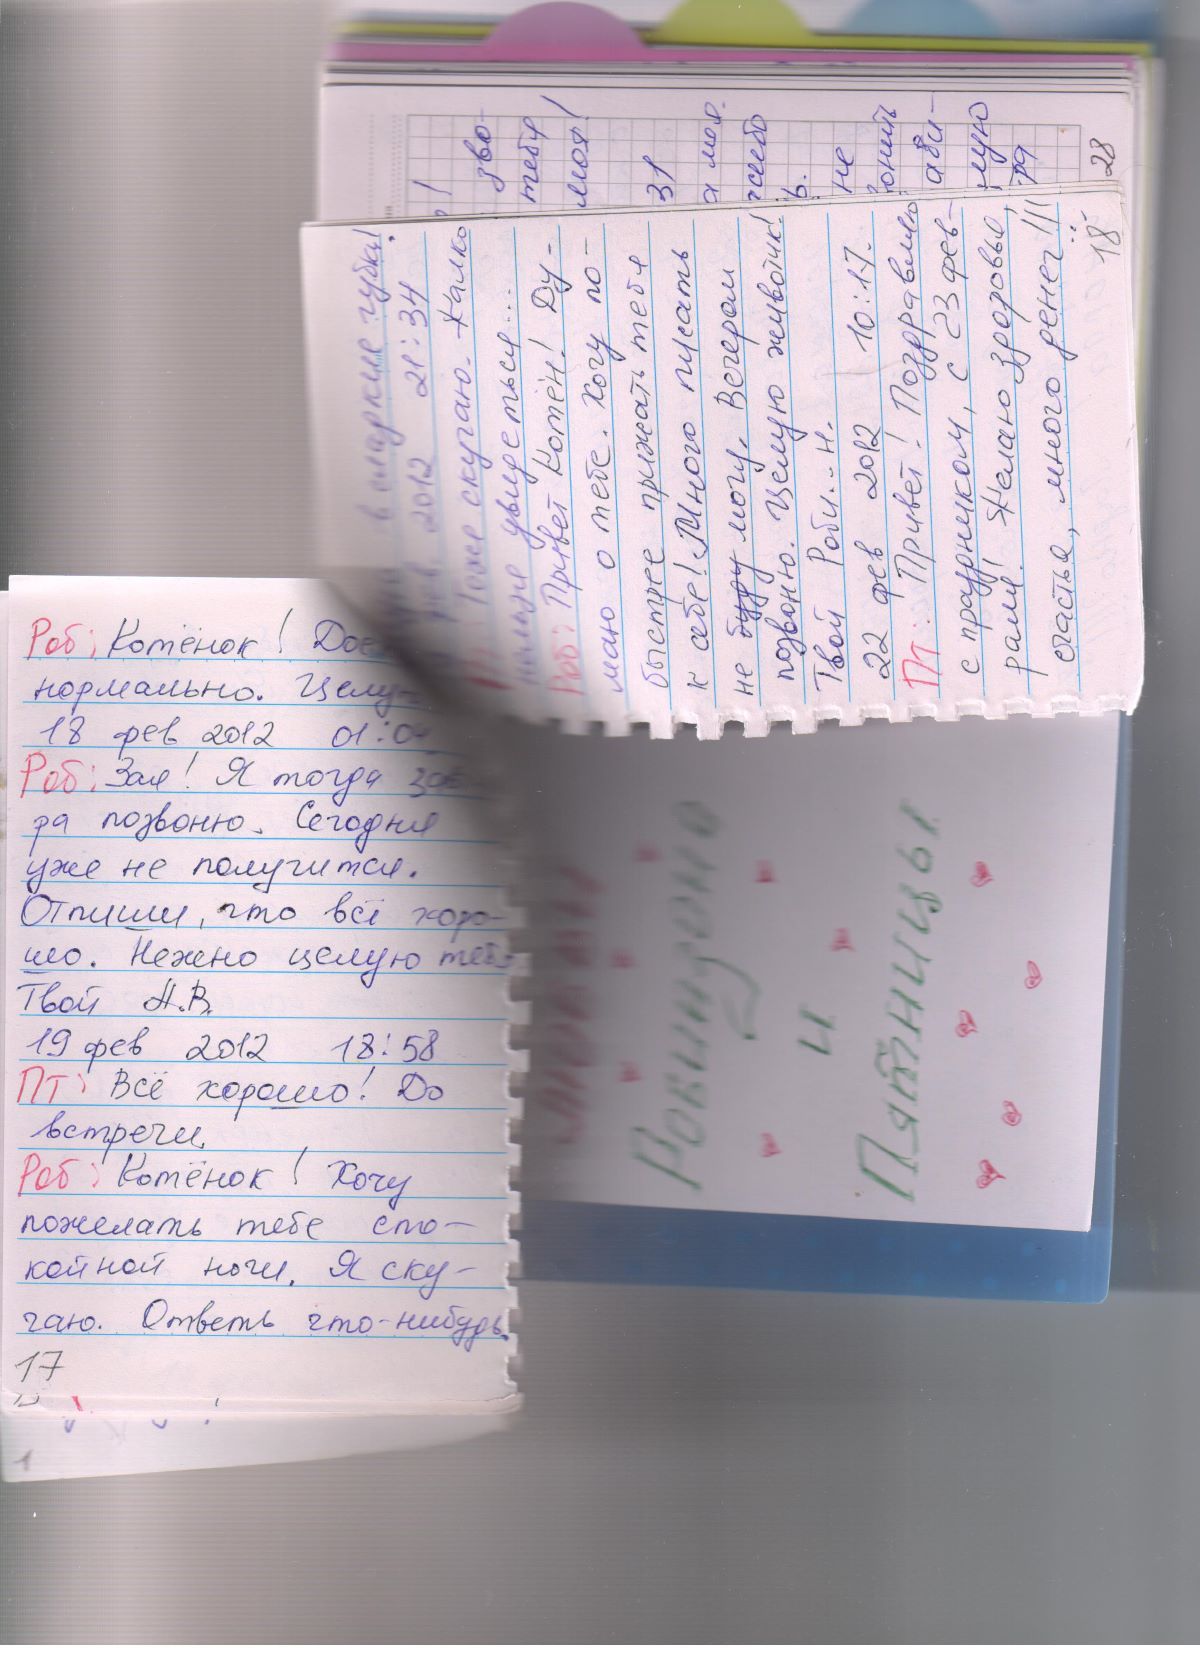 Роб: Котёнок!
нормально.
18 фев 2012
Роб: Зая! Я тогда
ра позвоню. Сегодня
уже не получится.
Отпиши, что всё хоро-
шо. Нежно целую тебя
Твой Н.В.
19 фев 2012 18:58
ПТ: Всё хорошо! До
встречи.
Роб: Котёнок! Хочу
пожелать тебе спо-
койной ночи. Я ску-
чаю. Ответь что-нибудь.
17
в сладкие губки!
фев 2012 21:34
Тоже скучаю. Жалко
нельзя увидеться...
Роб: Привет Котён! Ду-
маю о тебе. Хочу по-
быстрее прижать тебя
к себе! Много писать
не буду могу. Вечером
позвоню. Целую животик!
Твой Роби...н.
22 фев 2012 10:17.
ПТ: Привет! Поздравляю
с праздником, с 23 фев-
раля! Желаю здоровья,
счастья, много денег!!!
18
зво-
тебя
моя!
31
а моя.
не
28
Робинзона
и
Пятницы